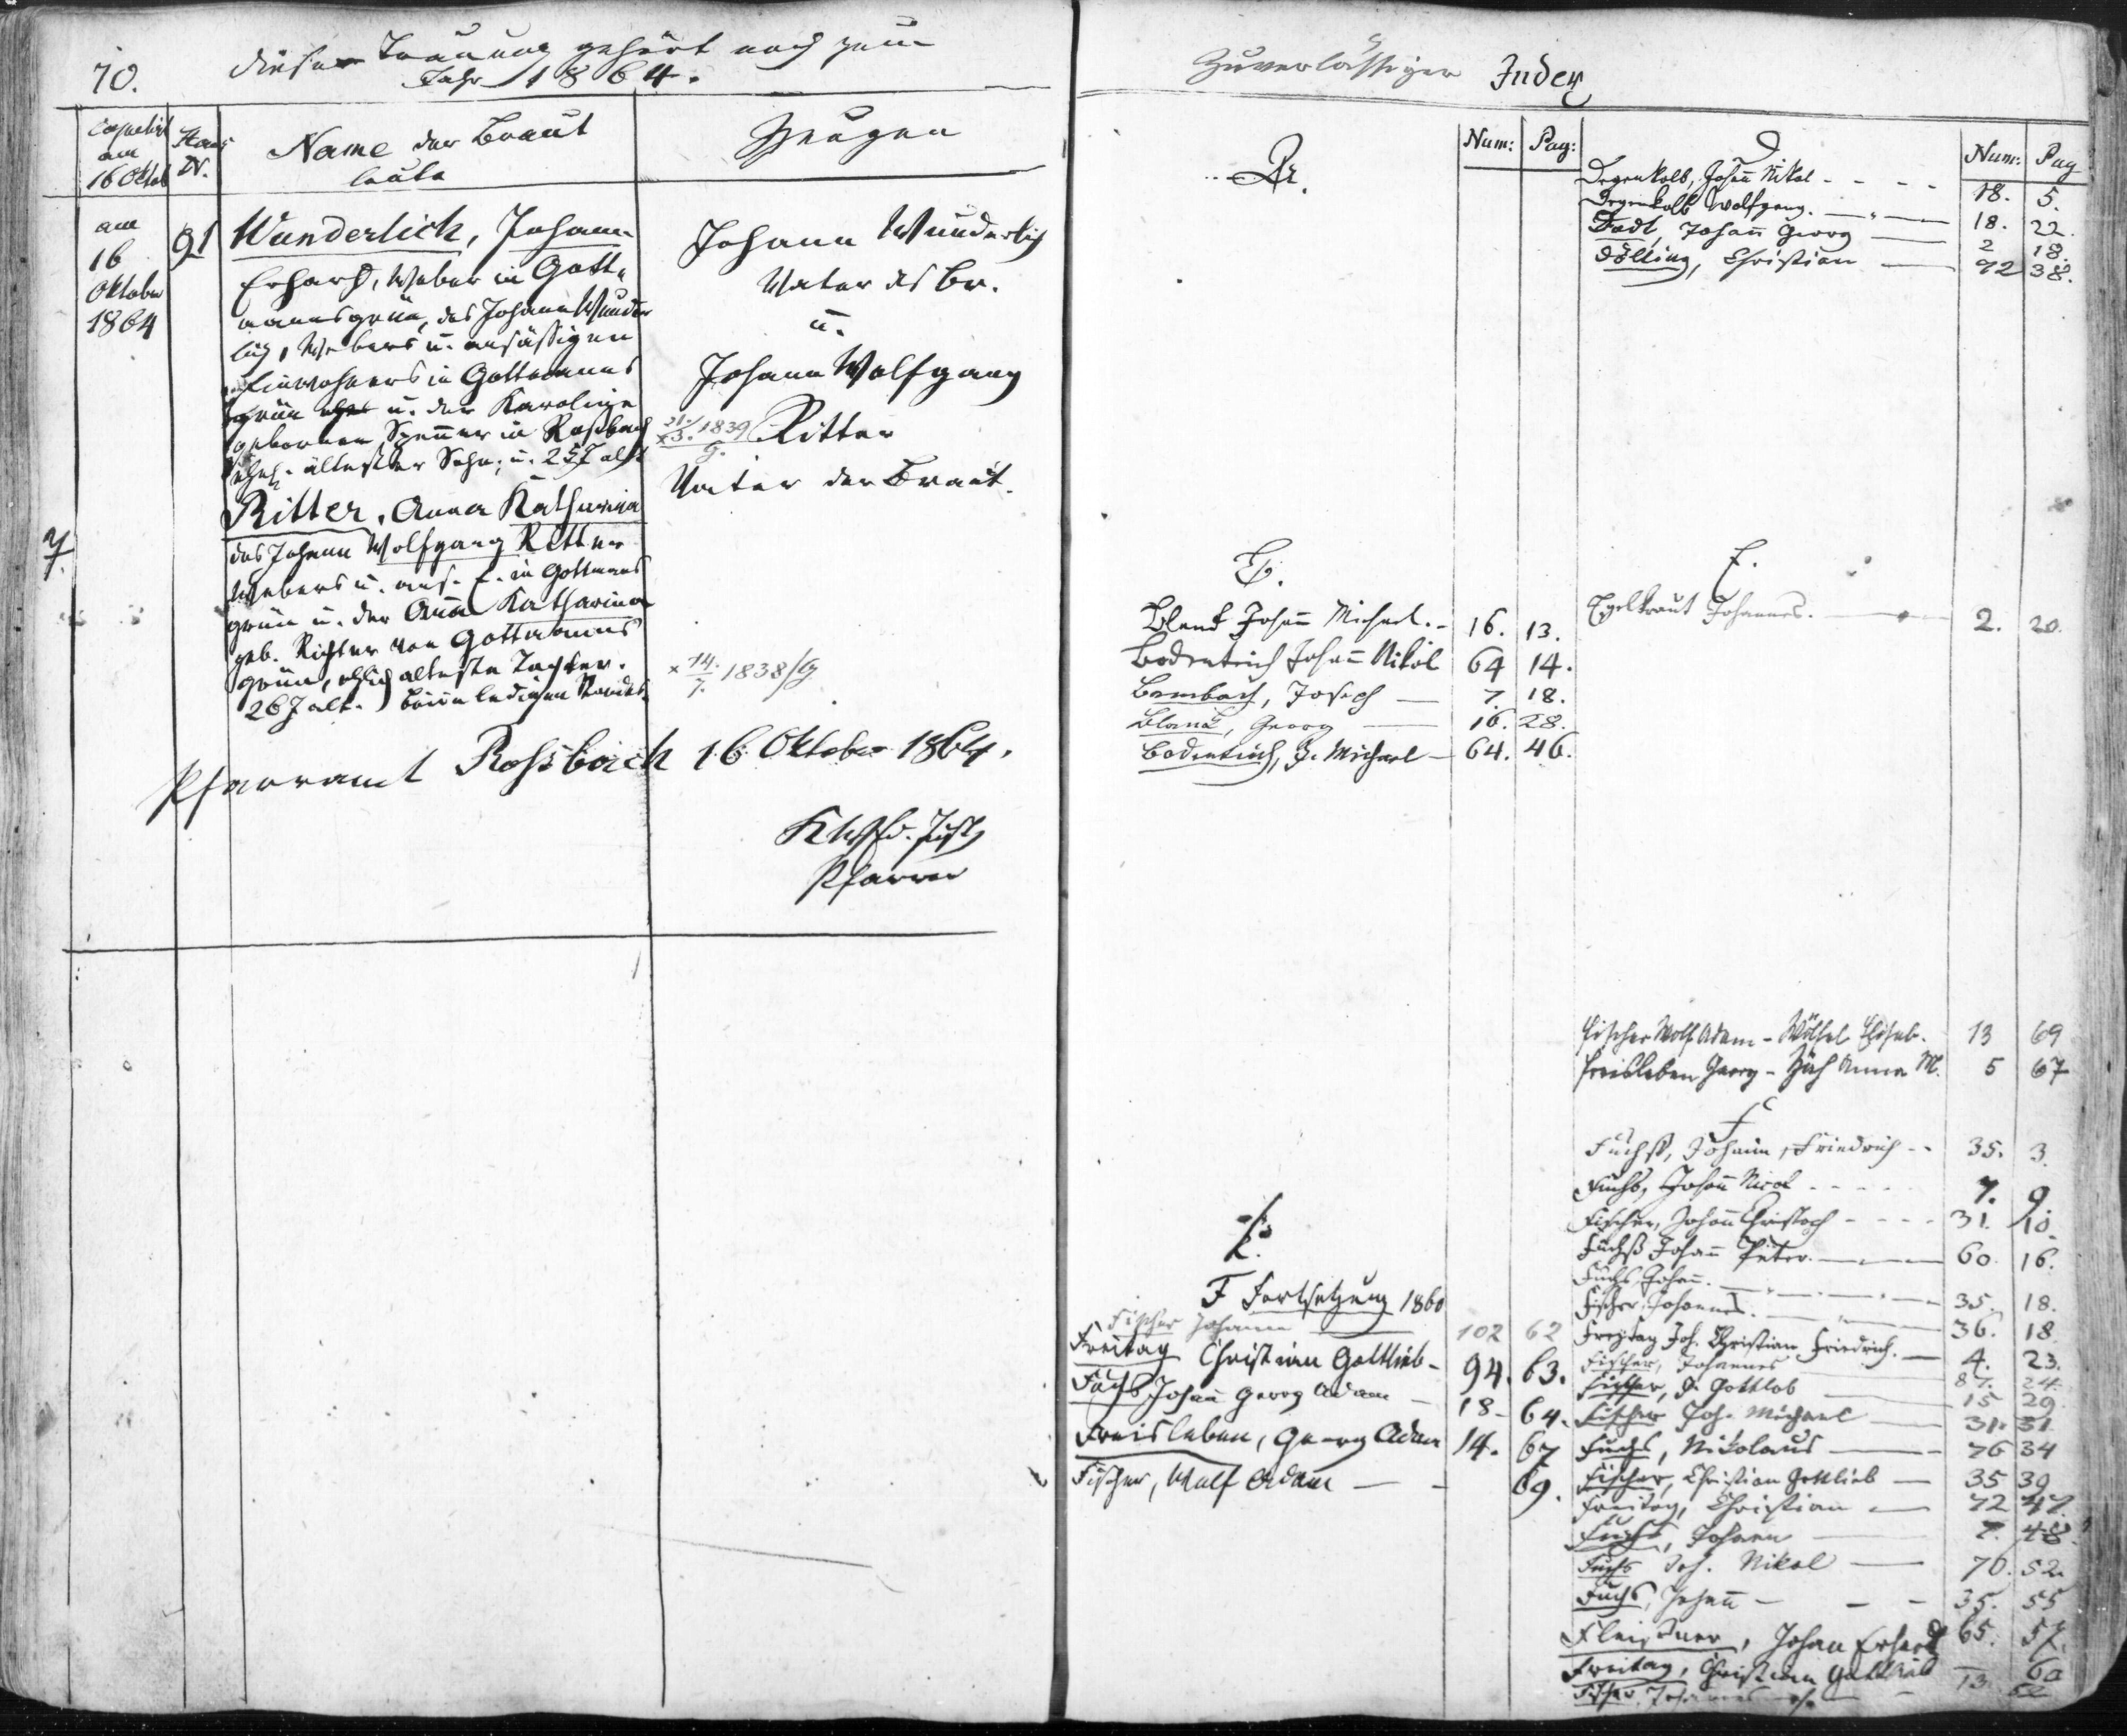 70.
diese Trauung gehört noch zum
Jahr 1864.
Copulirt
am
16 Oktob
Haus
N.
Name der Braut
leute
Zeugen
am
16
Oktober
1864
91
Wunderlich, Johann
Erhard, Weber in Gott-
mannsgrün, des Johann Wunder
lich, Webers u. ansäßigen
Einwohners in Gottmanns
grün u. der Karoline
gebornen Spenner in Roßbach
ehel. ältester Sohn, u. 25 J alt
Ritter, Anna Katharina
des Johann Wolfgang Ritter
Webers u. ans. E. in Gottmanns
grün u. der Anna Katharina
geb. Richter von Gottmanns
grün, ehlich älteste Tochter.
26 J alt. beide ledigen Standes.
Johann Wunderlich
Vater des Br.
u.
Johann Wolfgang
Ritter
Vater der Braut.
21./3. 1839
G.
× 14./7. 1838/G
Pfarramt Rossbach 16 Oktober 1864.
Pfarrer
Zuverlässiger Index
A.
Num: Pag:
B.
Bland Johann Michael. 16. 13.
Bodenteich Johann Nikol 64 14.
Bembach, Joseph 7. 18.
Bland, Georg 16. 28.
Bodenteich, J. Michael 64. 46.
C.
F Fortsetzung 1860
Fischer Johann 102 62
Freitag Christian Gottlieb 94. 63.
Fuchs Johann Georg Adam 18 64.
Freisleben, Georg Adam 14. 67
Fischer, Wolf Adam 69.
D
Num: Pag
Degenkolb, Johann Nikol 18. 5.
Degenkolb Wolfgang. 18. 22.
Johann Georg 2 18.
Dölling, Christian 72 38.
E.
Egelkraut Johannes. 2. 20.
Fischer Wolf Adam - Wölfel Elisab. 13 69
Freisleben Georg - Anna M. 5 67
F
Fuchß, Johann Friedrich 35. 3.
Fuchs, Johann Nicol 7. 9.
Fischer, Johann Christoph 31. 10.
Fuchß Johann Peter. 60. 16.
Fuchs, Johann. 35. 18.
Fischer, Johannes. 36. 18
Freytag Joh. Christian Friedrich. 4. 23.
Fischer, Johannes 87. 24.
Fischer, J. Gottlob 15 29
Fischer Joh. Michael 31. 31
Fuchs, Nikolaus 76 34
Fischer, Christian Gottlieb 35 39
Freitag, Christian 72 47.
Fuchs, Johann 7. 48.
Fuchs Joh. Nikol 70. 52.
Fuchs, Johann 35. 55
Fleißner, Johann Erhard 65. 57.
Freitag, Christian Gottlieb 13 60
Fischer, Johannes 62